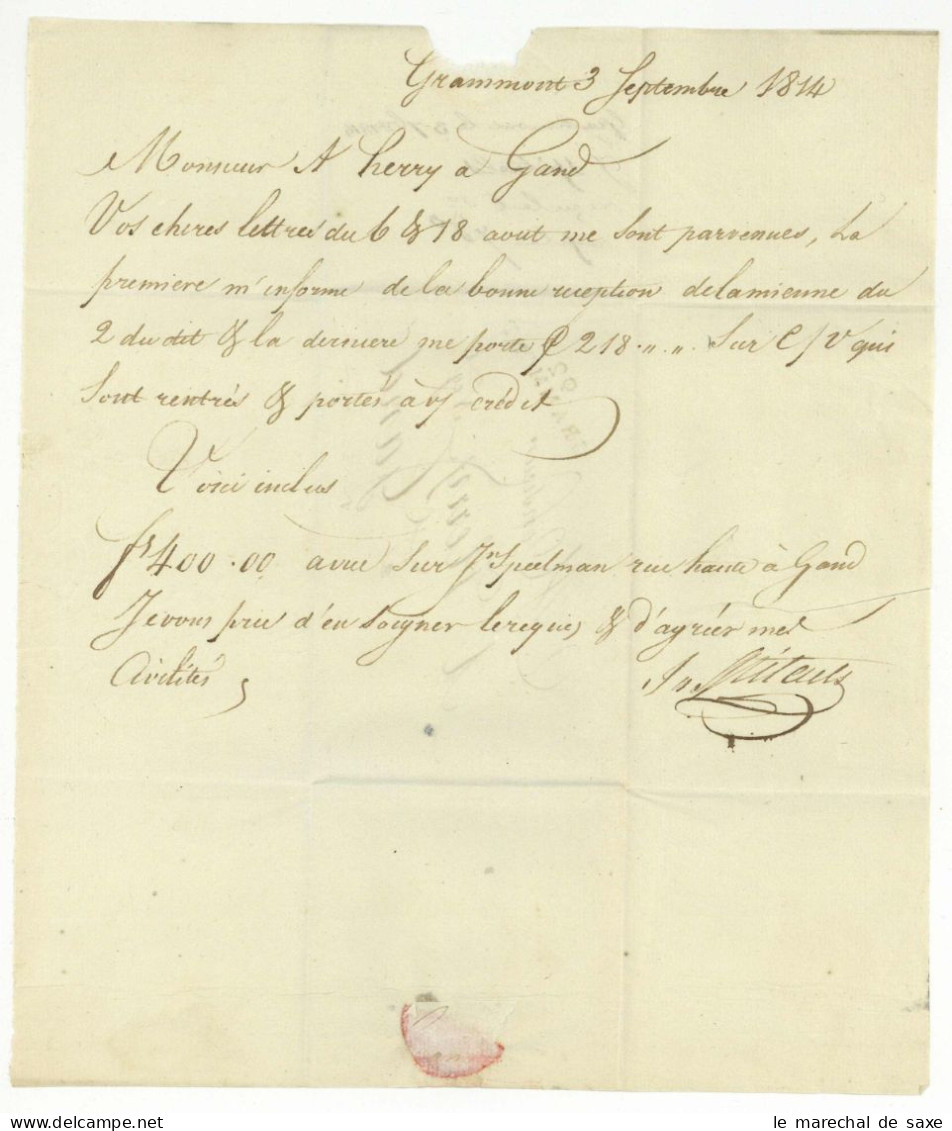 Grammont 3 Septembre 1814
Monsieur A herry a Gand
Vos cheres lettres du 6 & 18 aout me sont parvenues, La
premiere m'informe de la bonne reception de la mienne du
2 du dit & la derniere me porte 218 .,, .,, Sur C/V qui
sont rentrés & portés à v/ crédit
Voici inclus
fs 400.00 a vue sur Jn Speelman rue haute à Gand
Je vous prie d'en soigner le requis, & d'agréer mes
Civilités
Jn
le marechal de saxe